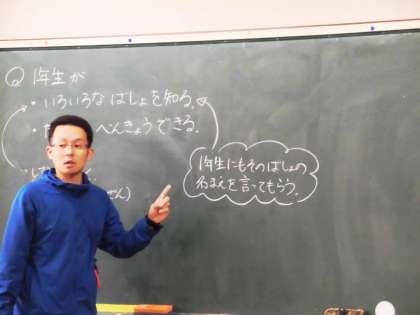 1年生が
・いろいろな はしょを知る。
べんきょうできる。
1年生にもそのはしょの
名まえを言ってもらう。
せん)